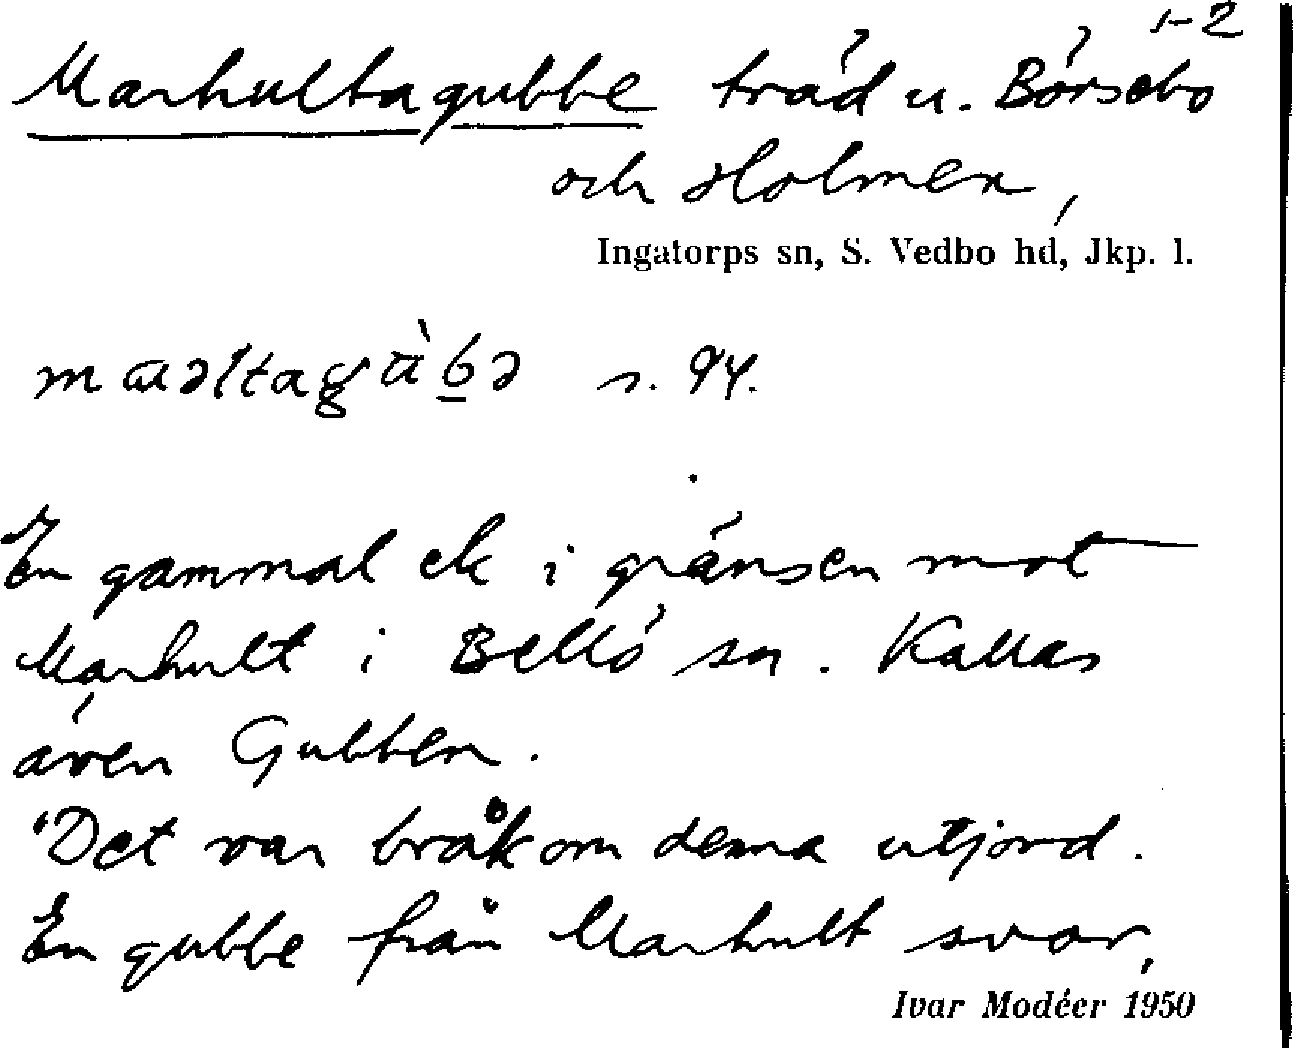 1-2
Marhultagubbe träd u. Börsebo
och Holmen,
Ingatorps sn, S. Vedbo hd, Jkp. l.
s. 94.
En gammal ek i gränsen mot
Marhult i Bellö sn. Kallas
även Gubben.
"Det var bråk om denna utjord.
En gubbe från Marhult svor,
Ivar Modéer 1950